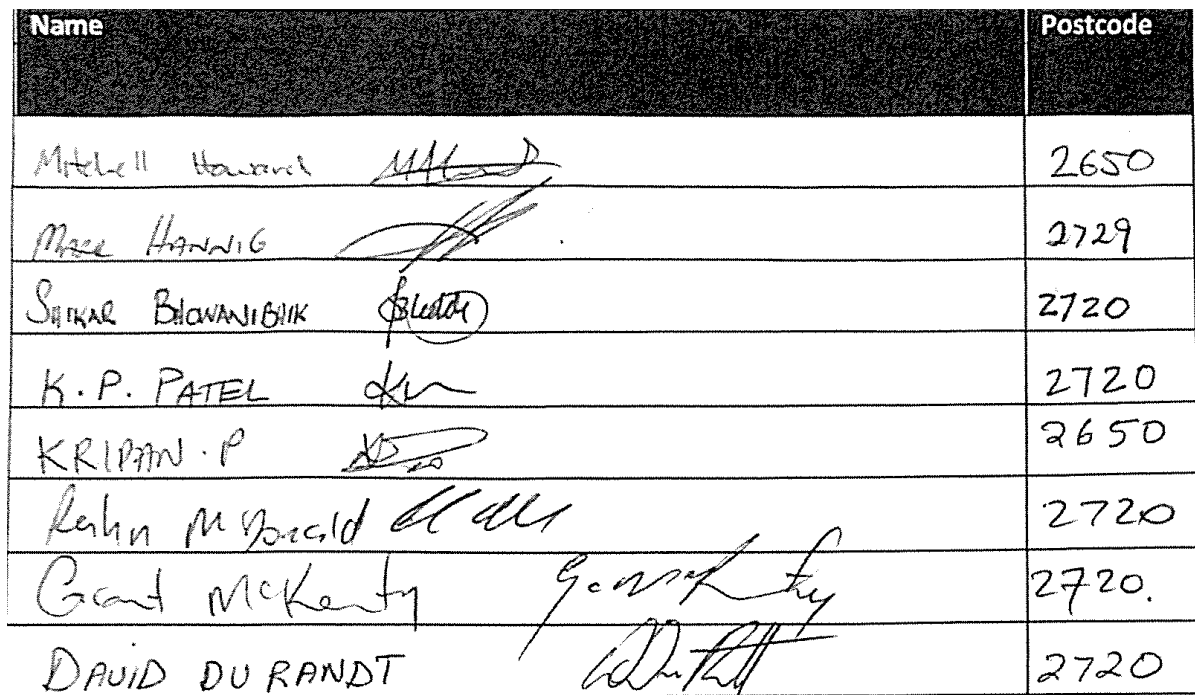 Name Postcode
Mitchell Howard 2650
Marc Hannig 2729
Shikar Bhowanibhik 2720
K.P. PATEL 2720
KRIPAN.P 2650
McDonald 2720
Grant McKenty 2720.
DAVID DU RANDT 2720